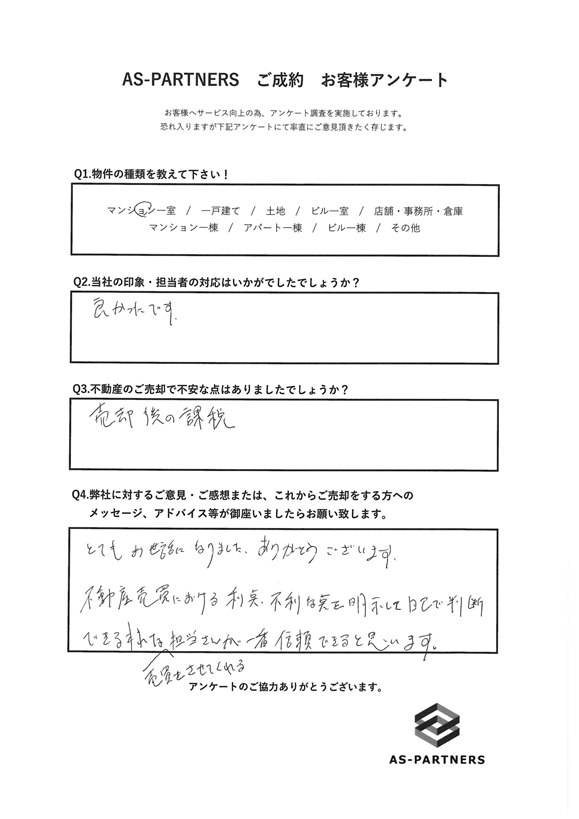 AS-PARTNERS ご成約 お客様アンケート
お客様へサービス向上の為、アンケート調査を実施しております。
恐れ入りますが下記アンケートにて率直にご意見頂きたく存じます。
Q1.物件の種類を教えて下さい！
マンション一室 / 一戸建て / 土地 / ビル一室 / 店舗・事務所・倉庫
マンション一棟 / アパート一棟 / ビル一棟 / その他
Q2.当社の印象・担当者の対応はいかがでしたでしょうか？
良かったです.
Q3.不動産のご売却で不安な点はありましたでしょうか？
売却後の課税
Q4.弊社に対するご意見・ご感想または、これからご売却をする方への
メッセージ、アドバイス等が御座いましたらお願い致します。
とてもお世話になりました. ありがとうございます.
不動産売買における利点. 不利な点を明示して自己で判断
できる 担当さんが一番信頼できると思います。
売買をさせてくれる
アンケートのご協力ありがとうございます。
AS-PARTNERS